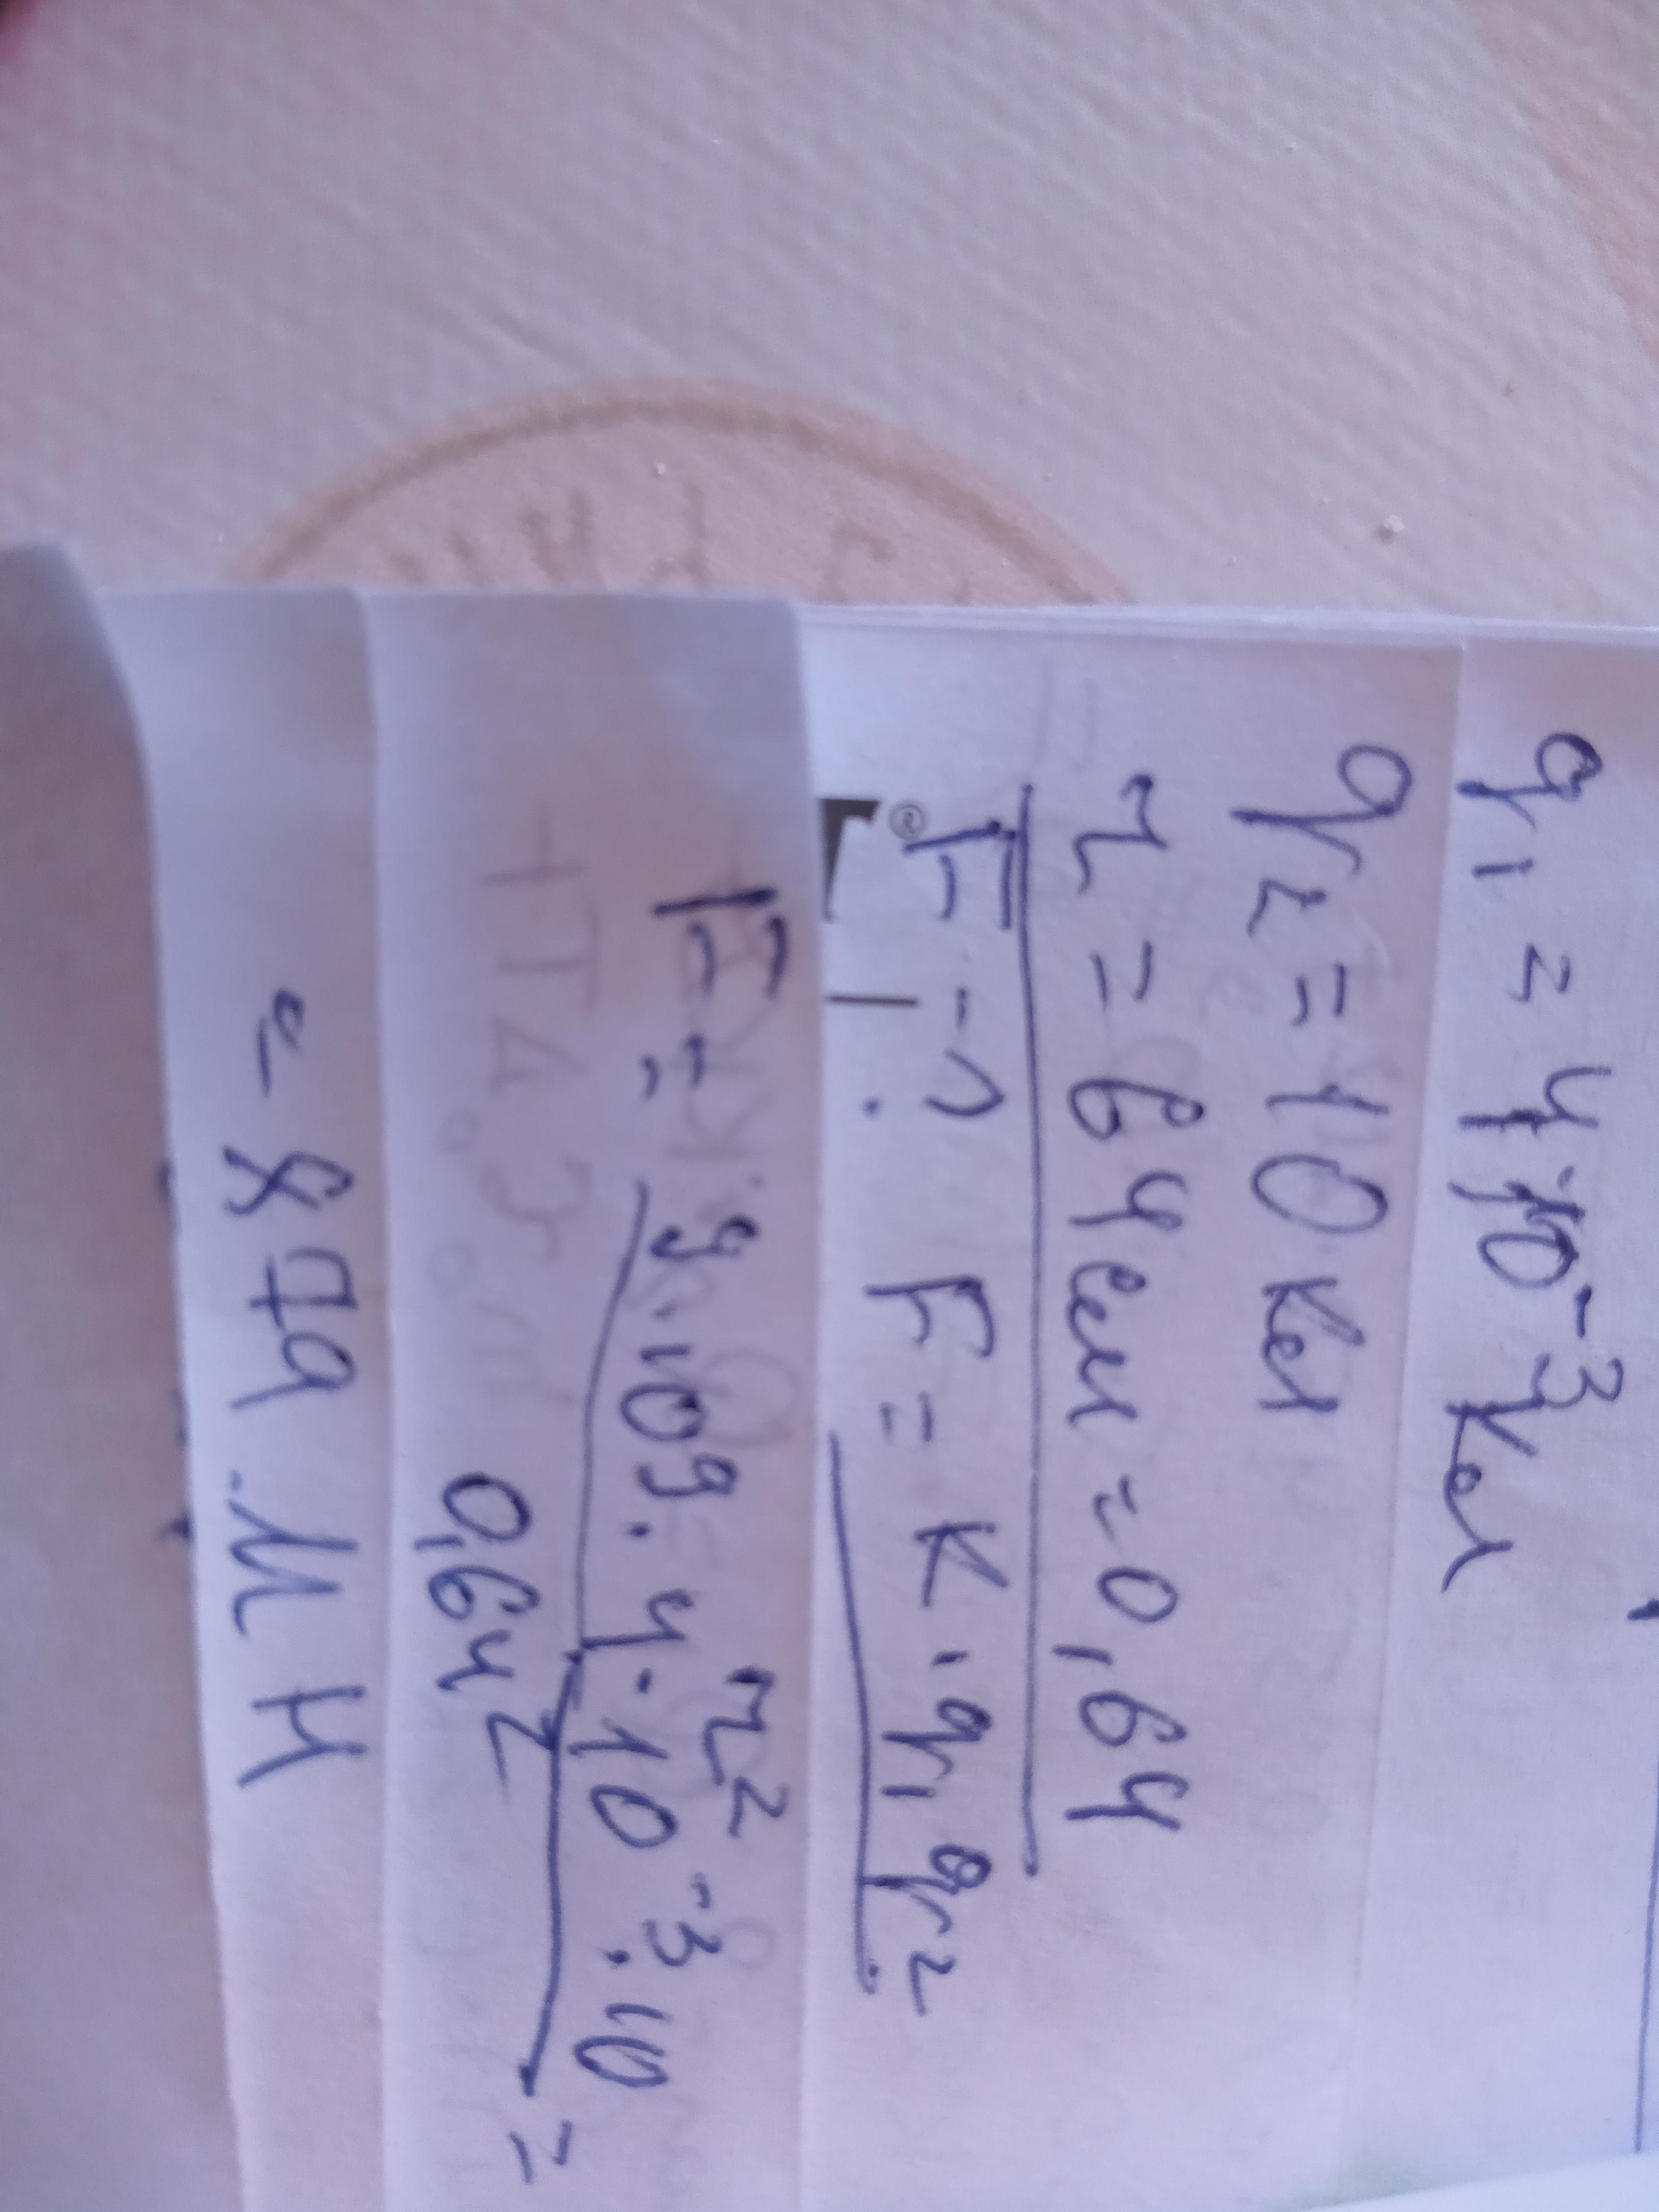 q₁ = 4·10⁻³ Кл
q₂ = 10 Кл
r = 64 см = 0,64
F - ?
F = K · q₁ q₂
r²
F = 9·10⁹ · 4·10⁻³ · 10 =
0,64²
= 879 М Н
®